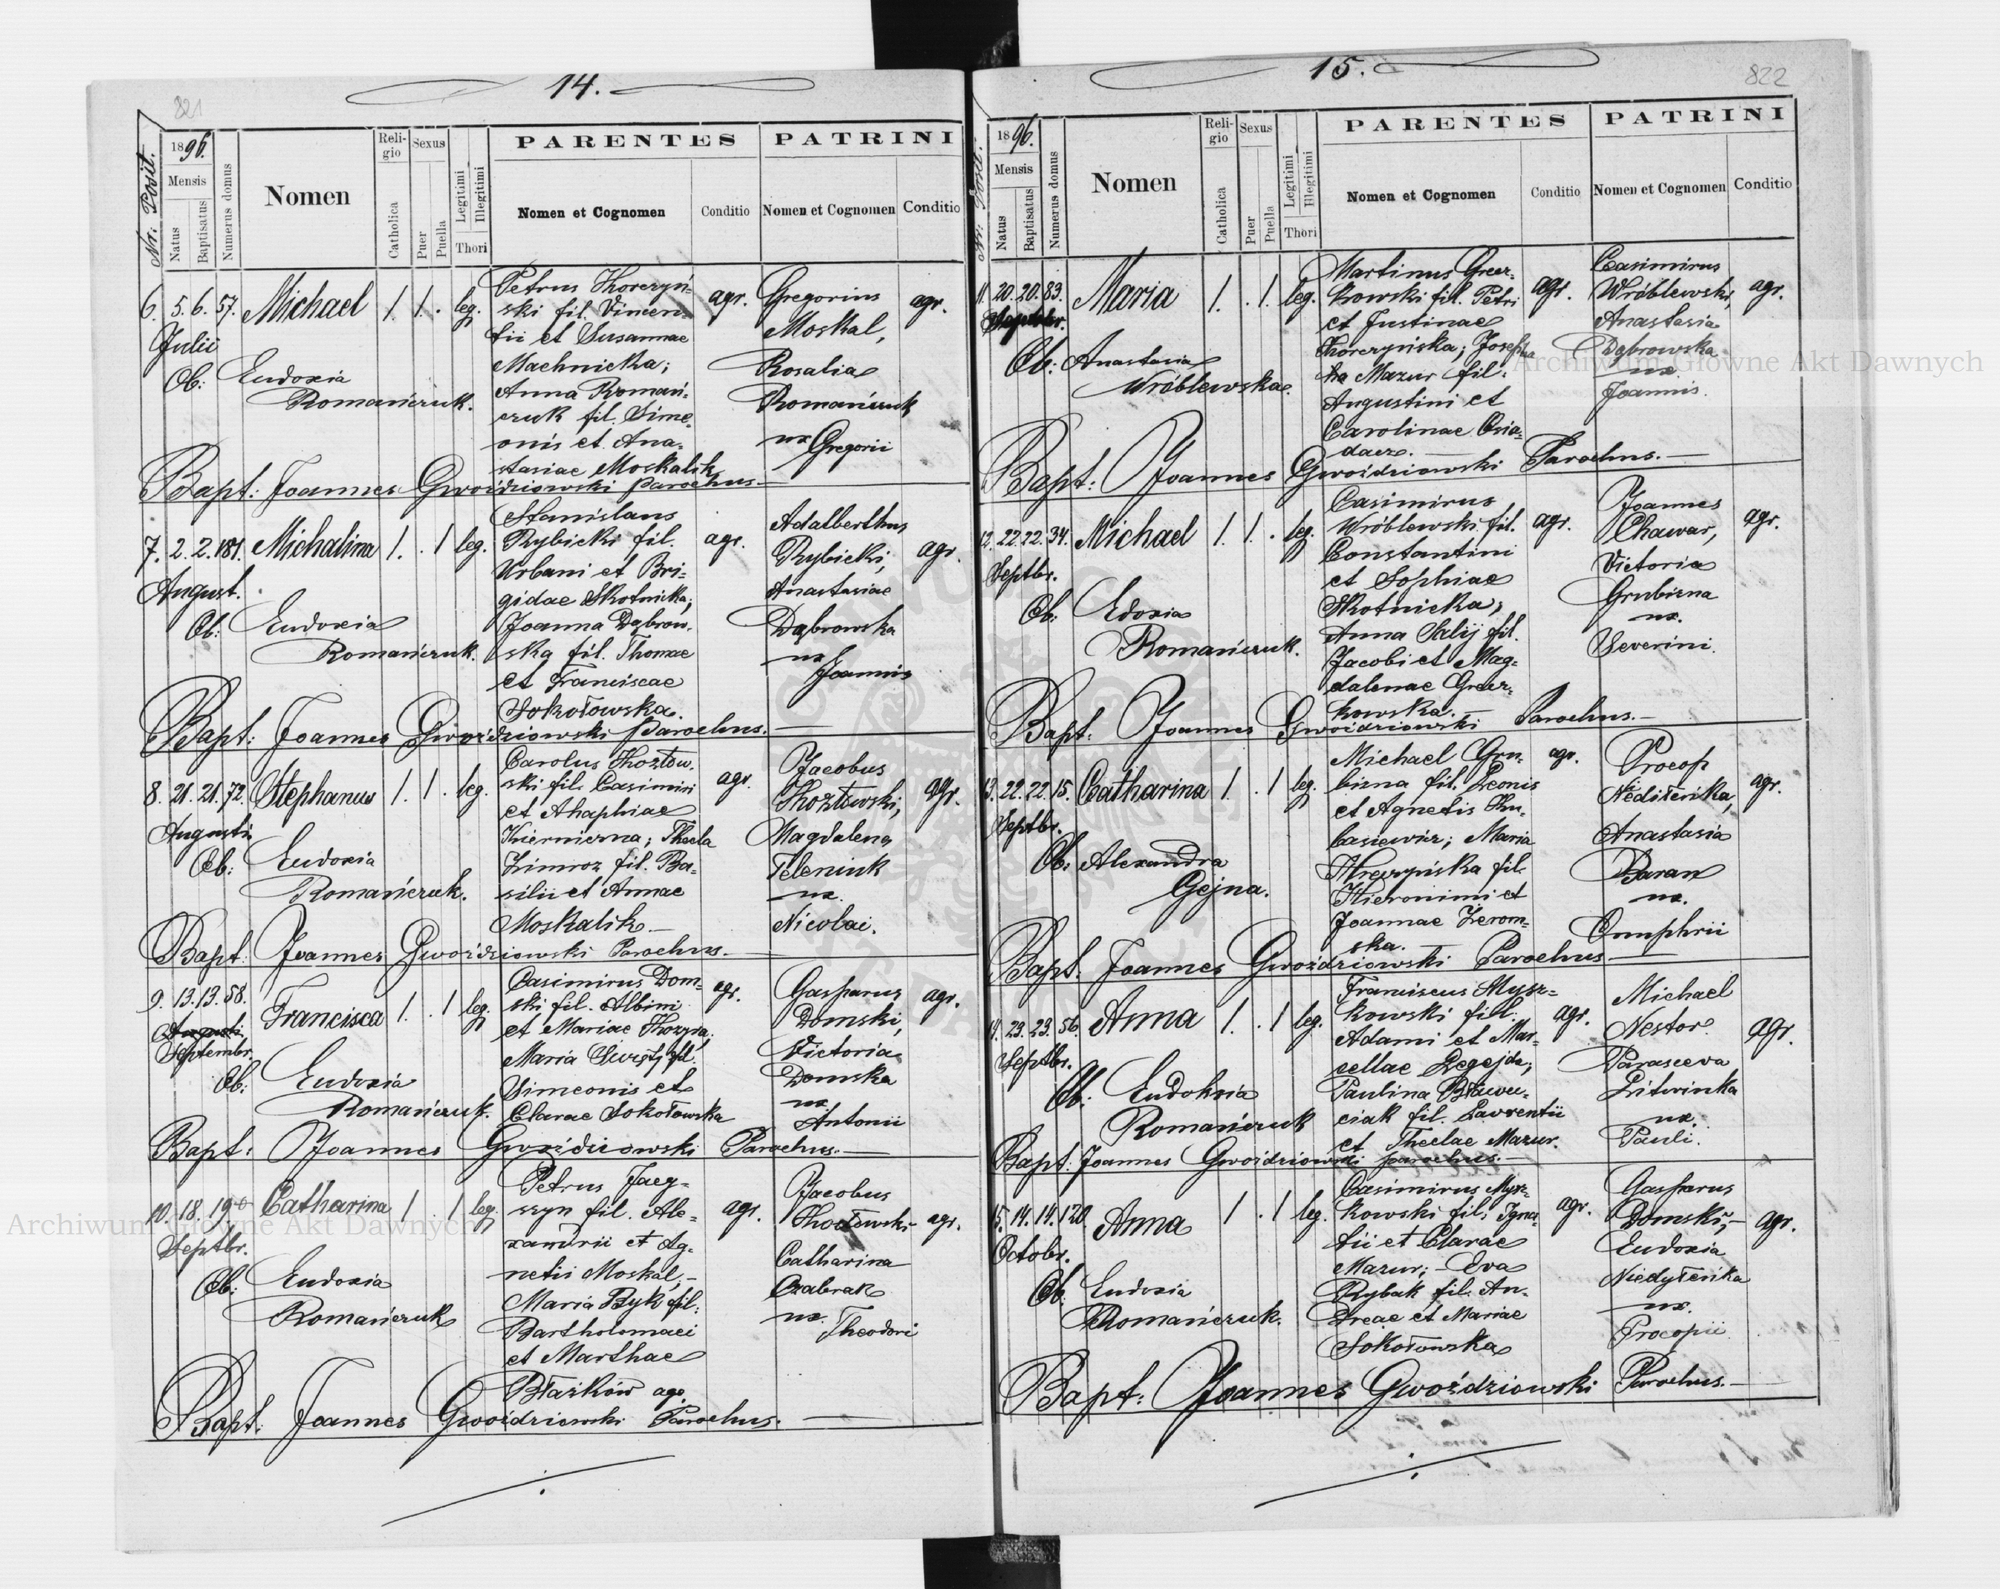 14.
821
Nr. Posit.
1896.
Mensis
Natus
Baptisatus
Numerus domus
Nomen
Religio
Catholica
Sexus
Puer
Puella
Legitimi
Illegitimi
Thori
PARENTES
Nomen et Cognomen
Conditio
PATRINI
Nomen et Cognomen
Conditio
6. 5. 6. 57. Michael 1. 1. . leg.
Julii
Ob: Eudoxia
Romańczuk.
Petrus Thorczyń-
ski fil. Vincen-
tii et Susannae
Machnicka;
Anna Romań-
czuk fil. Sime-
onis et Ana-
stasiae Moskalik
agr.
Gregorius
Moskal,
Rosalia
Romańczuk
ux Gregorii
agr.
Bapt: Joannes Gwoździowski Parochus.
7. 2. 2. 181. Michalina 1. . 1 leg.
August.
Ob: Eudoxia
Romańczuk.
Stanislaus
Rybicki fil.
Urbani et Bri-
gidae Skotnicka;
Joanna Dąbrow-
ska fil. Thomae
et Franciscae
Sokołowska.
agr.
Adalberthus
Rybicki,
Anastasiae
Dąbrowska
ux
Joannis
agr.
Bapt: Joannes Gwoździowski Parochus.
8. 21. 21. 72. Stephanus 1. 1 . leg.
Augusti
Ob: Eudoxia
Romańczuk.
Carolus
ski fil. Casimiri
et Ahaphiae
Kierniczna; Thecla
Zimroz fil. Ba-
silii et Annae
Moskalik
agr.
Jacobus
Magdalena
Teleniuk
ux.
Nicolai.
agr.
Bapt: Joannes Gwoździowski Parochus.
9. 13. 13. 58. Francisca 1. . 1 leg.
Augusti
Septembr.
Ob: Eudoxia
Romańczuk.
Casimirus Dom-
ski fil. Albini
et Mariae
Maria
Simeonis et
Clarae Sokołowska
agr.
Gasparus
Domski,
Victoria
Domska
ux
Antonii
agr.
Bapt: Joannes Gwoździowski Parochus.
10. 18. 19. Catharina 1 . 1 leg.
Septbr.
Ob: Eudoxia
Romańczuk
Petrus Jaeg-
szyn fil. Ale-
xandrii et Ag-
netis Moskal,
Maria Byk fil.
Bartholomaei
et Marthae
Błażków agr.
agr.
Jacobus
Catharina
Czabrak
ux.
Theodori
agr.
Bapt: Joannes Gwoździowski Parochus.
15.
822
Nr. Posit.
1896.
Mensis
Natus
Baptisatus
Numerus domus
Nomen
Religio
Catholica
Sexus
Puer
Puella
Legitimi
Illegitimi
Thori
PARENTES
Nomen et Cognomen
Conditio
PATRINI
Nomen et Cognomen
Conditio
11. 20. 20. 83. Maria 1. . 1. leg.
Septbr.
Ob: Anastasia
Wróblewska.
Martinus Grecz-
kowski fil. Petri
et Justinae
Thorczyńska; Josepha
Mazur fil.
Augustini et
Carolinae Osia-
dacz.
agr.
Casimirus
Wróblewski,
Anastasia
Dąbrowska
ux
Joannis.
agr.
Bapt: Joannes Gwoździowski Parochus.
12. 22. 22. 34. Michael 1. 1. . leg.
Septbr.
Ob: Edoxia
Romańczuk.
Casimirus
Wróblewski fil.
Constantini
et Sophiae
Skotnicka;
Anna Salij fil.
Jacobi et Mag-
dalenae Grecz-
kowska.
agr.
Joannes
Chawar,
Victoria
Grubizna
ux.
Severini.
agr.
Bapt: Joannes Gwoździowski Parochus.
13. 22. 22. 15. Catharina 1 . 1 leg.
Septbr.
Ob. Alexandra
Gejna.
Michael Gru-
bizna fil. Leonis
et Agnetis Łu-
casiewicz; Maria
fil.
Hieronimi et
Joannae Żerom-
ska.
agr.
Procop
Niedileńka,
Anastasia
Baran
ux.
Onuphrii
agr.
Bapt. Joannes Gwoździowski Parochus
14. 23. 23. 56. Anna 1. . 1 leg.
Septbr.
Ob: Eudoksia
Romańczuk
Franciscus Mysz-
kowski fil.
Adami et Mar-
cellae Legejda;
Paulina Bławu-
ciak fil. Laurentii
et Theclae Mazur.
agr.
Michael
Nestor
Parasceva
Litwinka
ux.
Pauli.
agr.
Bapt: Joannes Gwoździowski parochus.
15. 14. 14. 120. Anna 1 . 1 leg.
Octobr.
Ob. Eudoxia
Romańczuk.
Casimirus Mysz-
kowski fil. Igna-
tii et Clarae
Mazur; Eva
Rybak fil. An-
dreae et Mariae
Sokołowska
agr.
Gasparus
Domski,
Eudoxia
Niedyleńka
ux.
Procopii
agr.
Bapt: Joannes Gwoździowski Parochus.
Archiwum Główne Akt Dawnych
Archiwum Główne Akt Dawnych